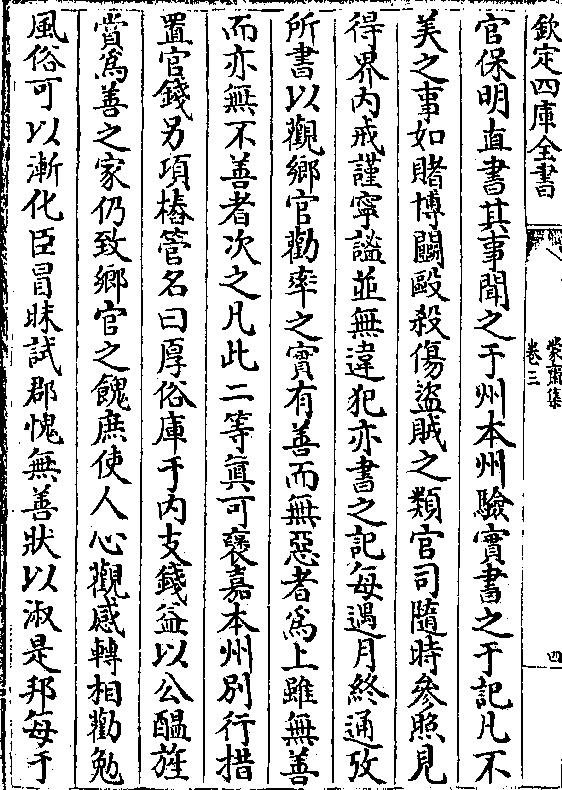 欽定四庫全書
蒙齋集
卷三
四
官保明直書其事聞之于州本州驗實書之于記凡不
美之事如賭博鬭毆殺傷盜賊之類官司隨時參照見
得界内戒謹寧謐並無違犯亦書之記每遇月終通攷
所書以觀鄉官勸率之實有善而無惡者為上雖無善
而亦無不善者次之凡此二等眞可褒嘉本州别行措
置官錢另項樁管名曰厚俗庫于内支錢益以公醖旌
賞為善之家仍致鄉官之餽庶使人心觀感轉相勸勉
風俗可以漸化臣冒昧試郡愧無善狀以淑是邦每于